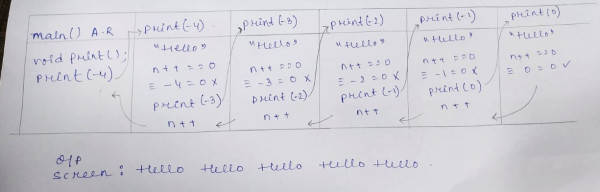 main() A.R
void print();
print(-4)
print(-4)
"Hello"
n++ == 0
≡ -4 = 0 x
print(-3)
n++
print(-3)
"Hello"
n++ == 0
≡ -3 = 0 x
print(-2)
n++
print(-2)
"Hello"
n++ == 0
≡ -2 = 0 x
print(-1)
n++
print(-1)
"Hello"
n++ == 0
≡ -1 = 0 x
print(0)
n++
print(0)
"Hello"
n++ == 0
≡ 0 = 0 ✓
o/p
screen : Hello Hello Hello Hello Hello.